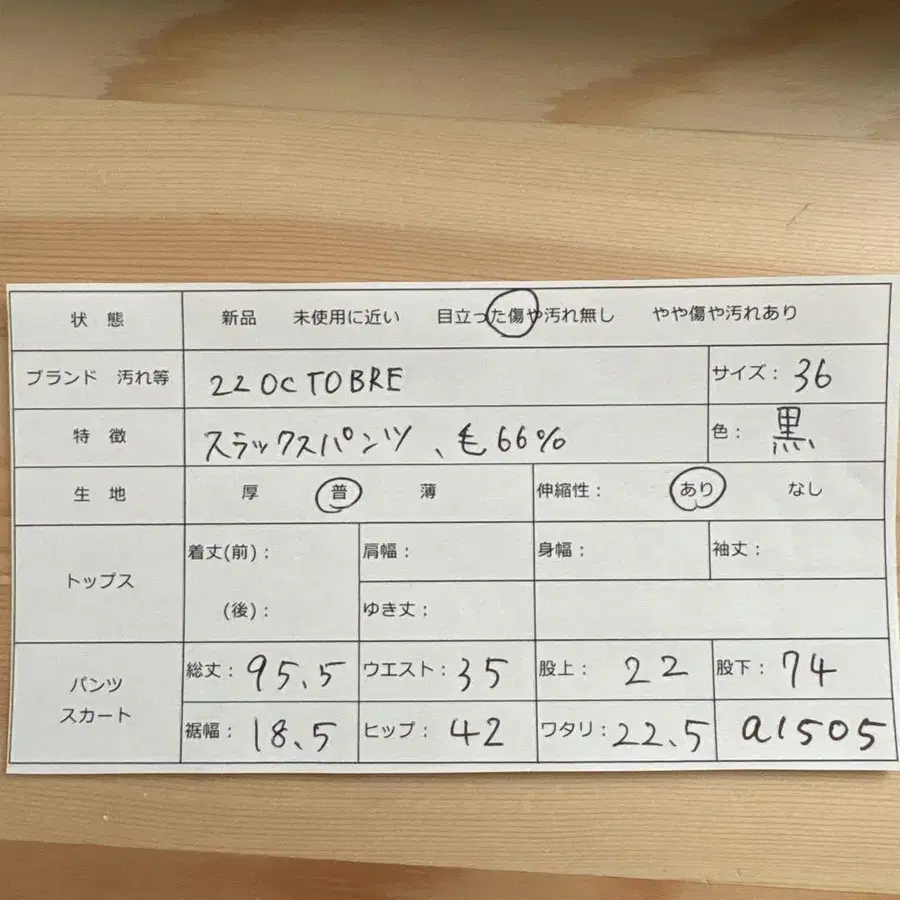 状 態 新品 未使用に近い 目立った傷や汚れ無し やや傷や汚れあり
ブランド 汚れ等 22 OCTOBRE サイズ: 36
特 徴 スラックスパンツ、毛66% 色: 黒
生 地 厚 普 薄 伸縮性: あり なし
トップス 着丈(前): 肩幅: 身幅: 袖丈:
(後): ゆき丈:
パンツ スカート 総丈: 95.5 ウエスト: 35 股上: 22 股下: 74
裾幅: 18.5 ヒップ: 42 ワタリ: 22.5 a1505